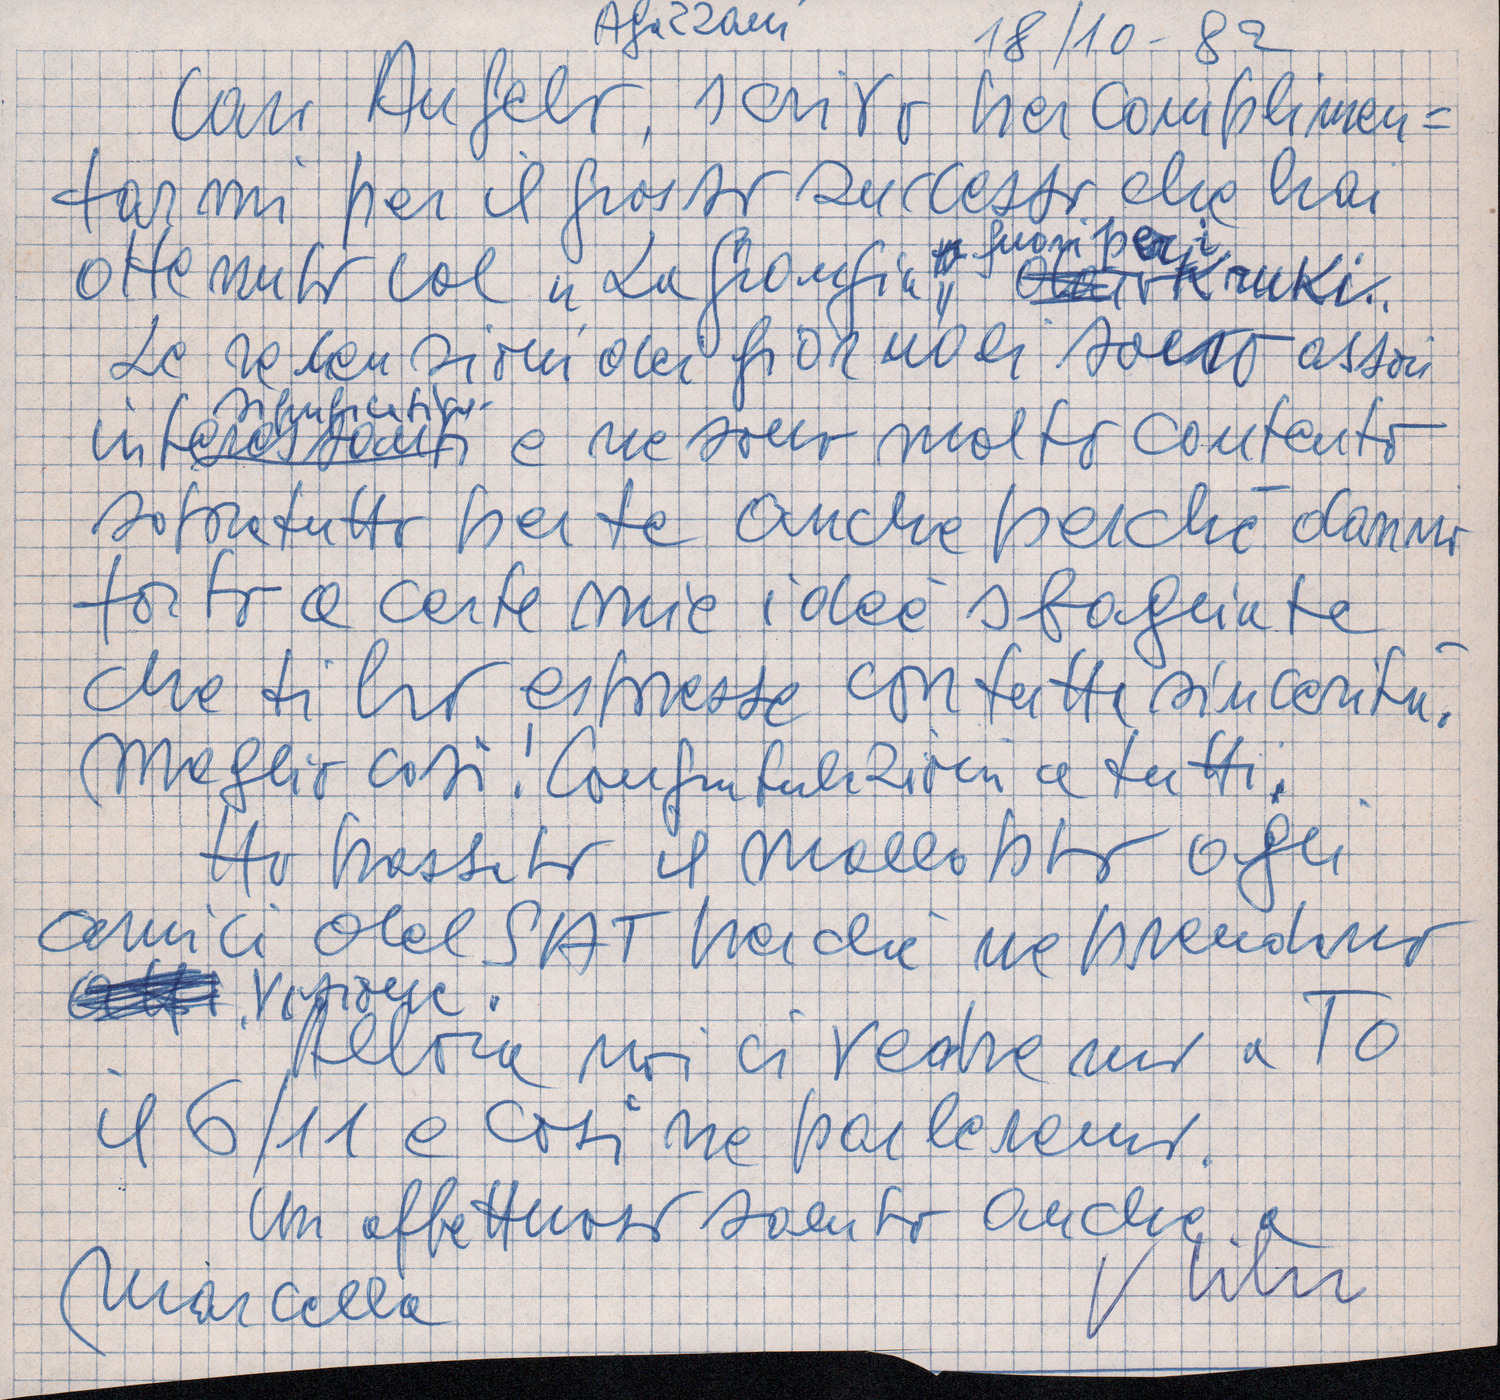 Agazzani 18/10-82
Caro Angelo, scrivo per complimen=
tarmi per il grosso successo che hai
fuori per i
ottenuto col "La Grangia" Kruki.
Le recensioni dei giornali sono assai
significative
interessanti e ne sono molto contento
sopratutto per te anche perchē danno
torto a certe mie idee sbagliate
che ti ho espresse con tutta sincerità.
Meglio così! Congratulazioni a tutti.
Ho passato il malloppo agli
amici del SAT perchè ne prendano
visione.
Allora noi ci vedremo a TO
il 6/11 e così ne parleremo.
Un affettuoso saluto anche a
Marcella